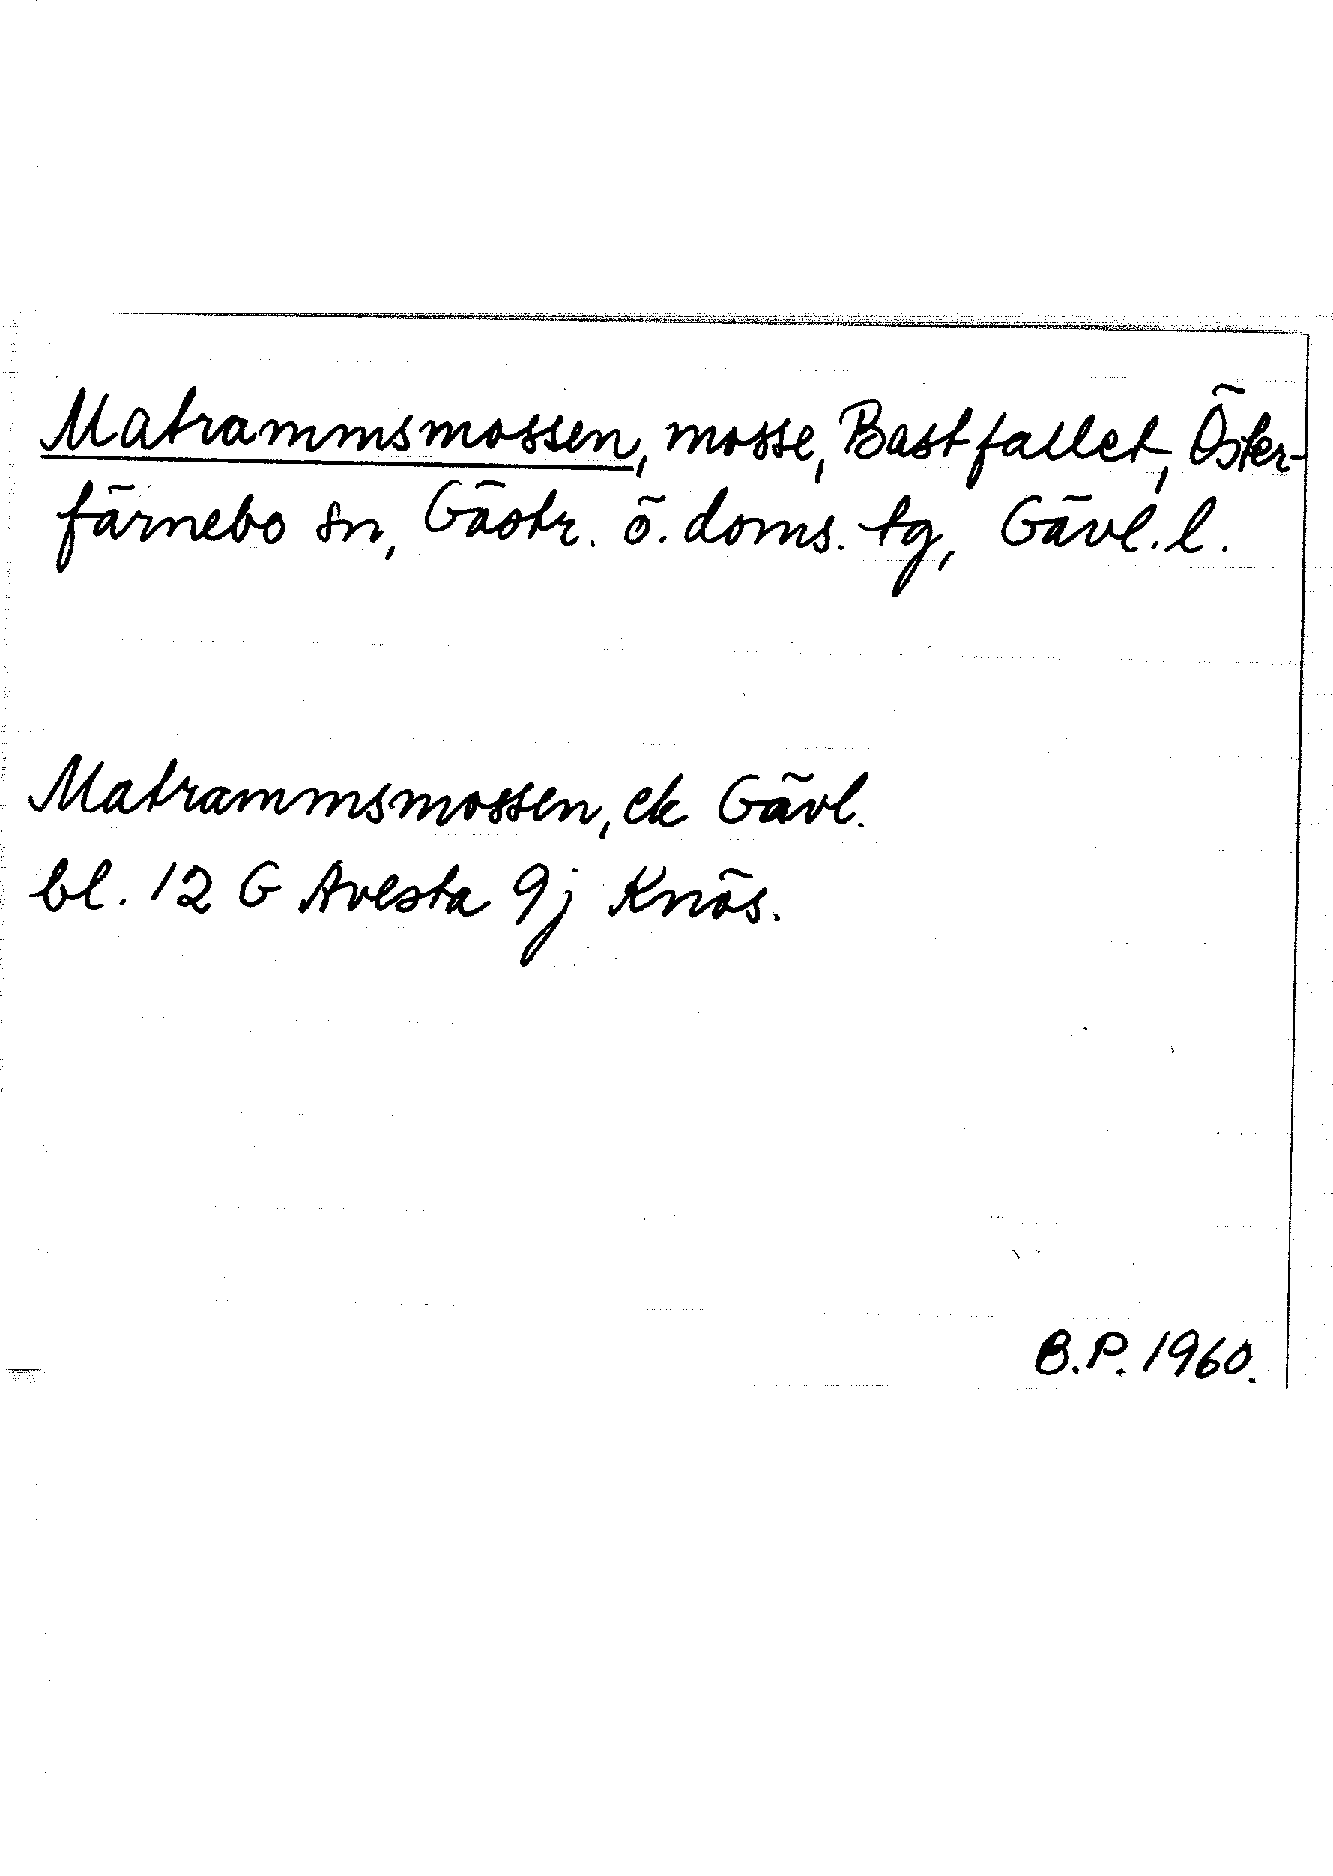 Matrammsmossen, mosse, Bastfallet, Öster-
färnebo sn, Gästr. ö. doms. tg, Gävl. l.
Matrammsmossen, ek Gävl.
bl. 12 G Avesta 9j Knös.
B.P. 1960.